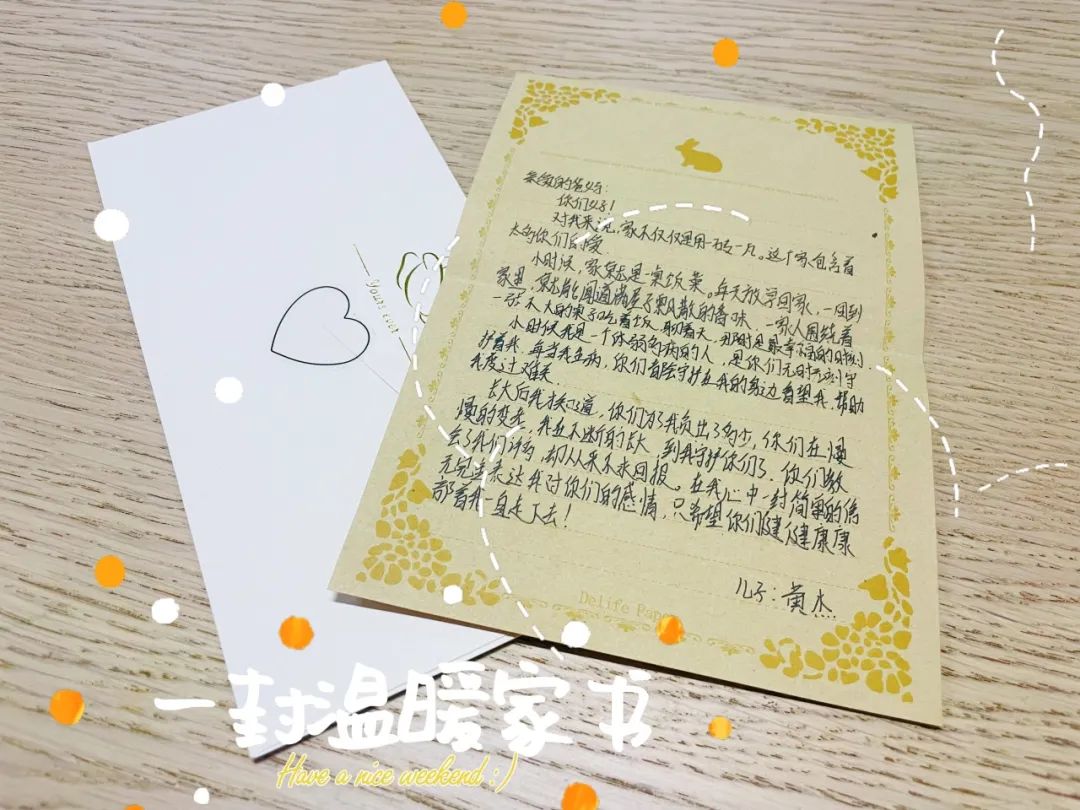 亲爱的爸妈:
你们好!
对我来说,家不仅仅是用一砖一瓦。这个家包含着
太多你们的爱
小时候,家就是一桌饭菜。每天放学回家,一回到
家里,就能闻道满屋子飘散的香味,一家人围绕着
一张不大的桌子吃着饭,聊着天,那时是最幸福的时刻
小时候我是一个体弱多病的人,是你们无时无刻守
护着我,每当我生病,你们都会守护在我的身边看望我,帮助
我度过难关
长大后我才知道,你们为我负出了多少,你们在慢
慢的变老,我在不断的长大,到我守护你们了,你们教
会了我们许多,却从来不求回报。在我心中一封简单的信
无完全表达我对你们的感情,只希望你们健健康康
陪着我一直走下去!
儿子:黄杰
Delife Paper
Yours ever
一封温暖家书
Have a nice weekend :)